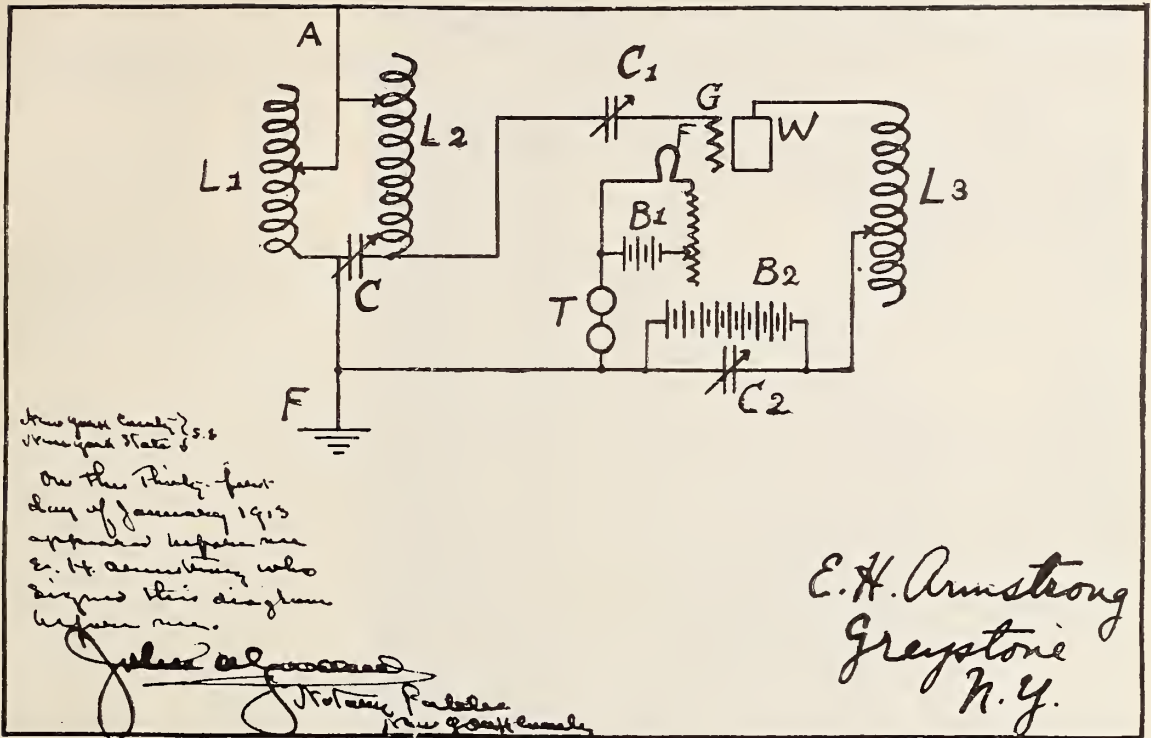 A
C1
G
F
W
L1
L2
L3
B1
B2
T
C
C2
F
New York County } s.s
New York State
On this Thirty-first
day of January 1913
appeared before me
E. H. Armstrong who
signed this diagram
before me.
Notary Public
New York County
E.H. Armstrong
Greystone
N.Y.